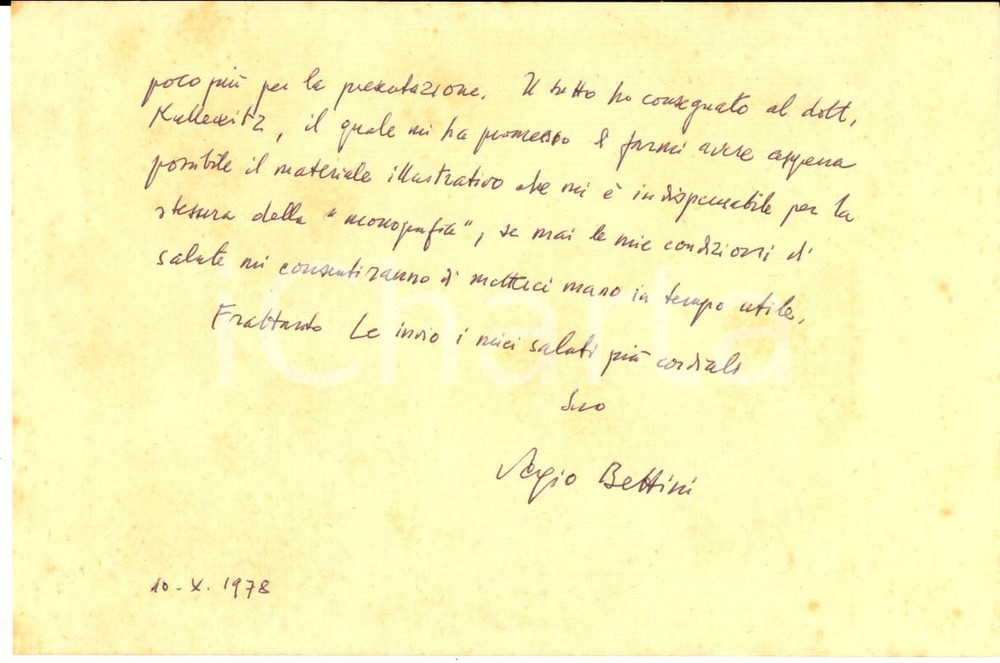 poco più per la presentazione. Il tutto ho consegnato al dott.
il quale mi ha promesso di farmi avere appena
possibile il materiale illustrativo che mi è indispensabile per la
stesura della "monografia", se mai le mie condizioni di
salute mi consentiranno di metterci mano in tempo utile.
Frattanto Le invio i miei saluti più cordiali
Suo
Sergio Bettini
10-X. 1978
iCharta